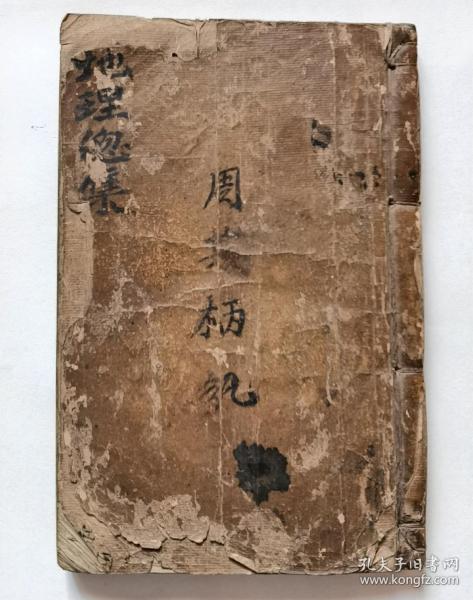 地理总集
周其柄記
孔夫子旧书网
www.kongfz.com